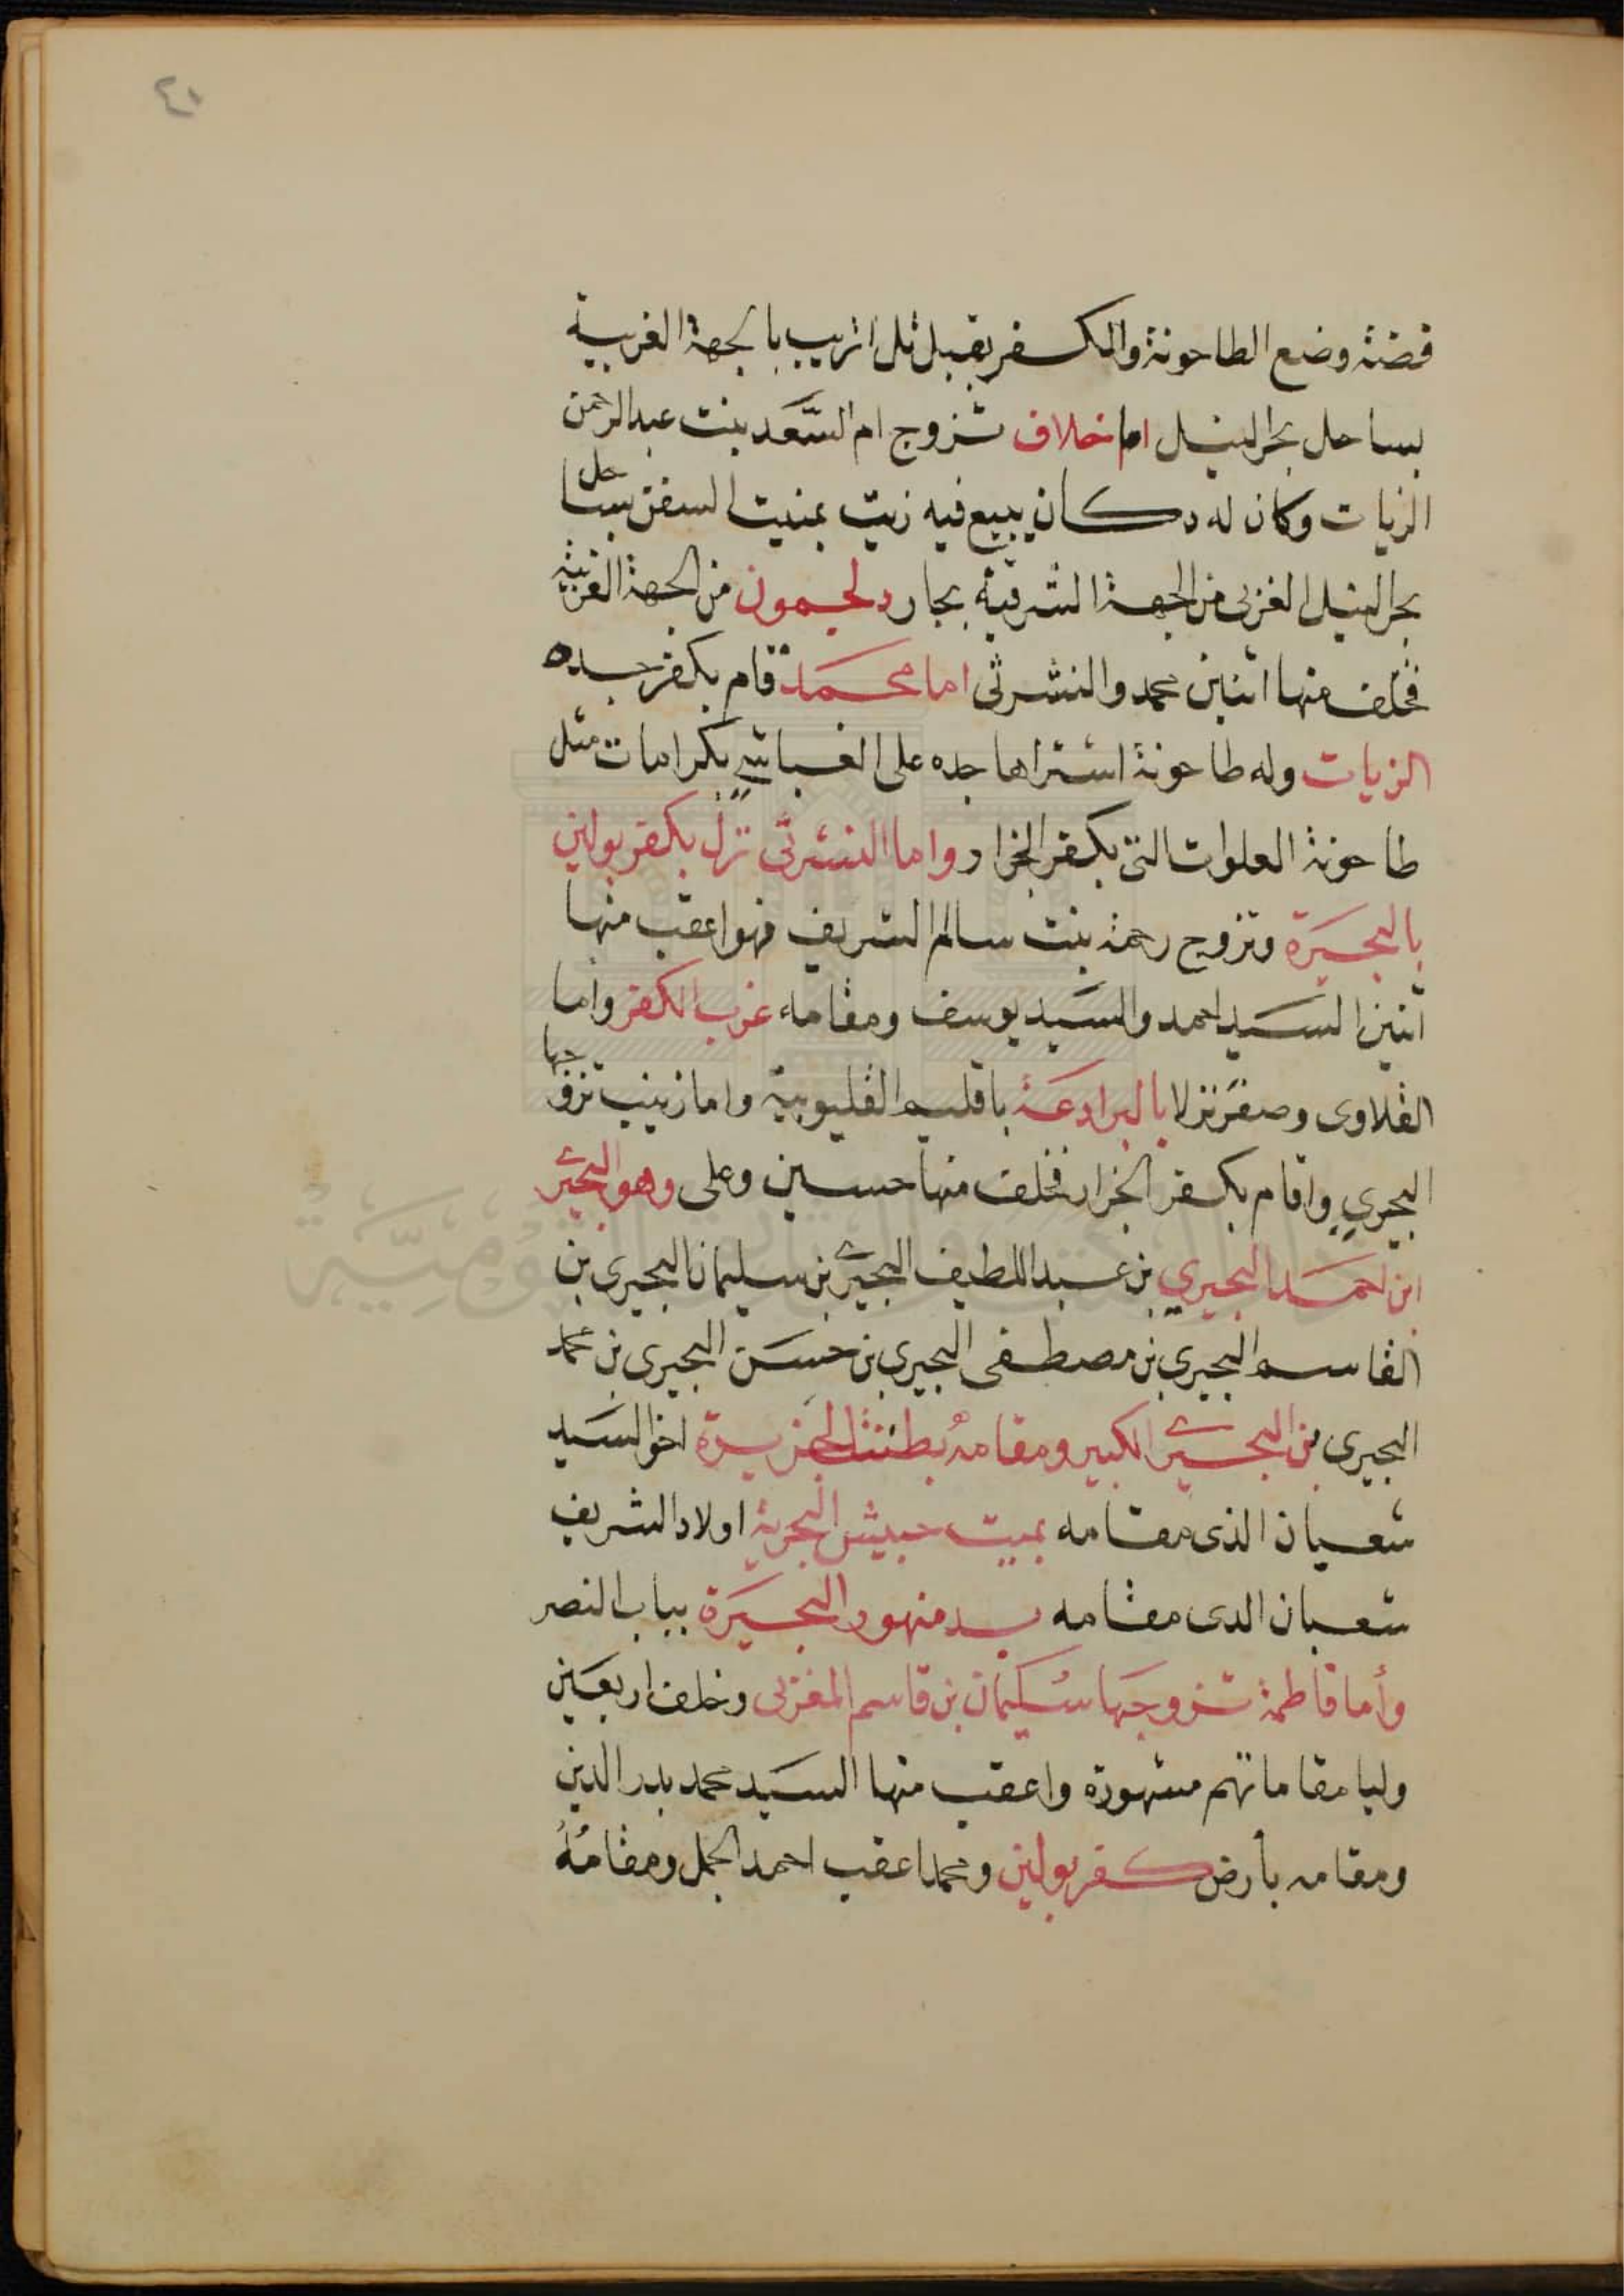 ٤١
قصته وضع الطاحونة والكفر بقبل تل اتريب بالجهة الغربية
بساحل بحر النيل اما خلاف تزوج ام السَّعَد بنت عبد الرحمن
الزيات وكان له دكان يبيع فيه زيت بمنيت السفن بساحل
بحر النيل الغربى من الجهة الشرقية بجار دلجمون من الجهة الغربية
فخلف منها اتنين محمد والنشرتى اما محمد قام بكفر جده
الزيات وله طاحونة اشتراها جده على الغباشي بكرامات مثل
طاحونة العلوات التى بكفر الجزار واما النشرتى نزل بكفر بولين
بالبحيرة وتزوج رحمة بنت سالم الشريف فهو اعقب منها
اتنين السيد احمد والسيد يوسف ومقامه غرب الكفر واما
القلاوى وصقر نزلا بالبرادعة باقليم القليوبية واما زينب تزوجها
البجيري واقام بكفر الجزار فخلف منها حسين وعلى وهو البجيرى
ابن احمد البجيري بن عبد اللطيف البجيرى بن سليمان البجيرى بن
القاسم البجيري بن مصطفى البجيري بن حسن البجيرى بن محمد
البجيرى بن البجيرى الكبير ومقامهُ بطنتل الجزيرة اخو السيد
شعبان الذى مقامه بميت حبيش البحرية اولاد الشريف
شعبان الدى مقامه بدمنهور البحيرة بباب النصر
وأما فاطمة تزوجها سليمان بن قاسم المغربى وخلف اربعين
وليا مقاماتهم مشهورة واعقب منها السيد محمد بدر الدين
ومقامه بأرض كفر بولين ومحمد اعقب احمد الجمل ومقامُهُ